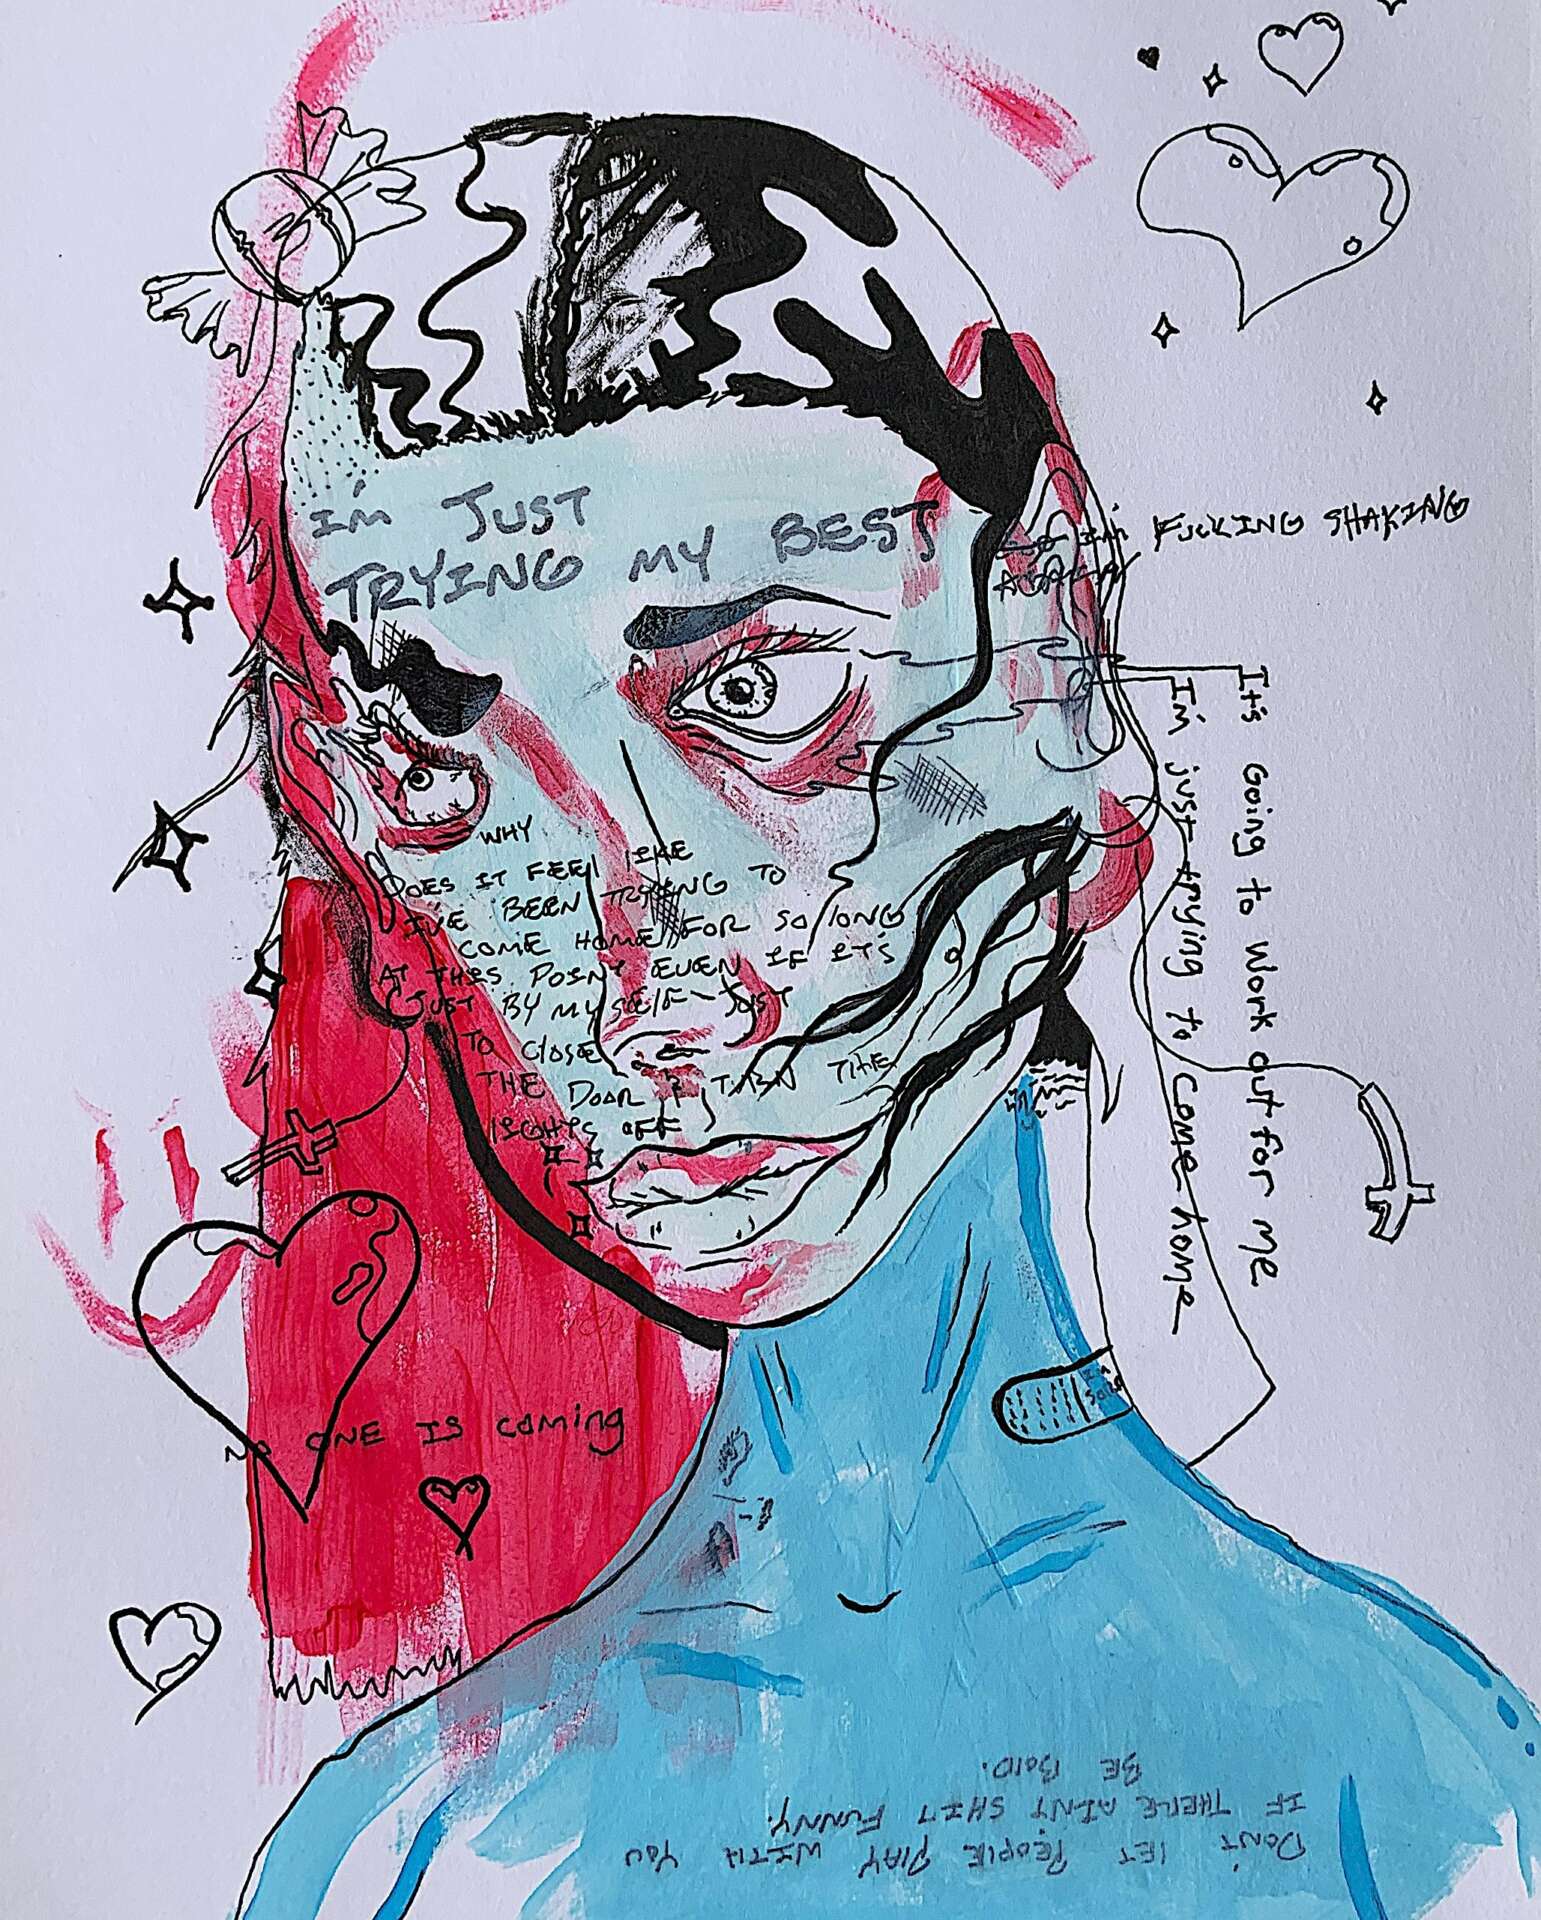 I'M JUST
TRYING MY BEST
I'm FUCKING SHAKING
AGAIN
It's Going to work out for me
I'm just trying to come home
WHY
DOES IT FEEL LIKE
I'VE BEEN TRYING TO
COME HOME FOR SO LONG
AT THIS POINT EVEN IF IT'S
JUST BY MYSELF - JUST
TO CLOSE
THE DOOR & TURN THE
LIGHTS OFF
NO ONE IS coming
DON'T LET PEOPLE PLAY WITH YOU
IF THERE AIN'T SHIT FUNNY.
BE BOLD.